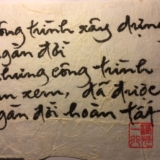 công trình xây dựng
ngàn đời
nhưng công trình
xem, đã được
ngàn đời hoàn tất